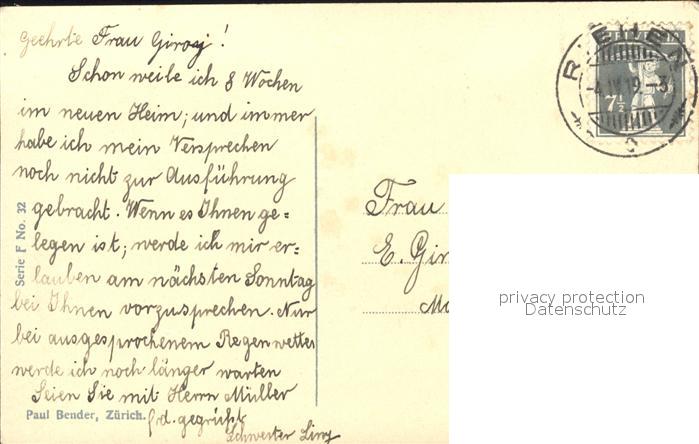 Geehrte Frau Giroy!
Schon weile ich 8 Wochen
im neuen Heim; und immer
habe ich mein Versprechen
noch nicht zur Ausführung
gebracht. Wenn es Ihnen ge=
legen ist; werde ich mir er=
lauben am nächsten Sonntag
bei Ihnen vorzusprechen. Nur
bei ausgesprochenem Regenwetter
werde ich noch länger warten
Seien Sie mit Herrn Müller
frd. gegrüßt
Schwester Liny
Serie F No. 32
Paul Bender, Zürich.
RIEHEN
-4.IV.19.-3
HELVETIA
7½
Frau
E. Gir
privacy protection
Datenschutz